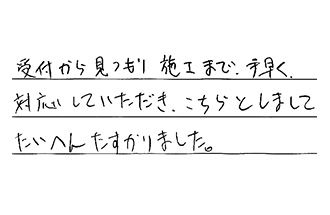 受付から見つもり 施工まで、手早く、
対応していただき、こちらとしまして
たいへんたすかりました。